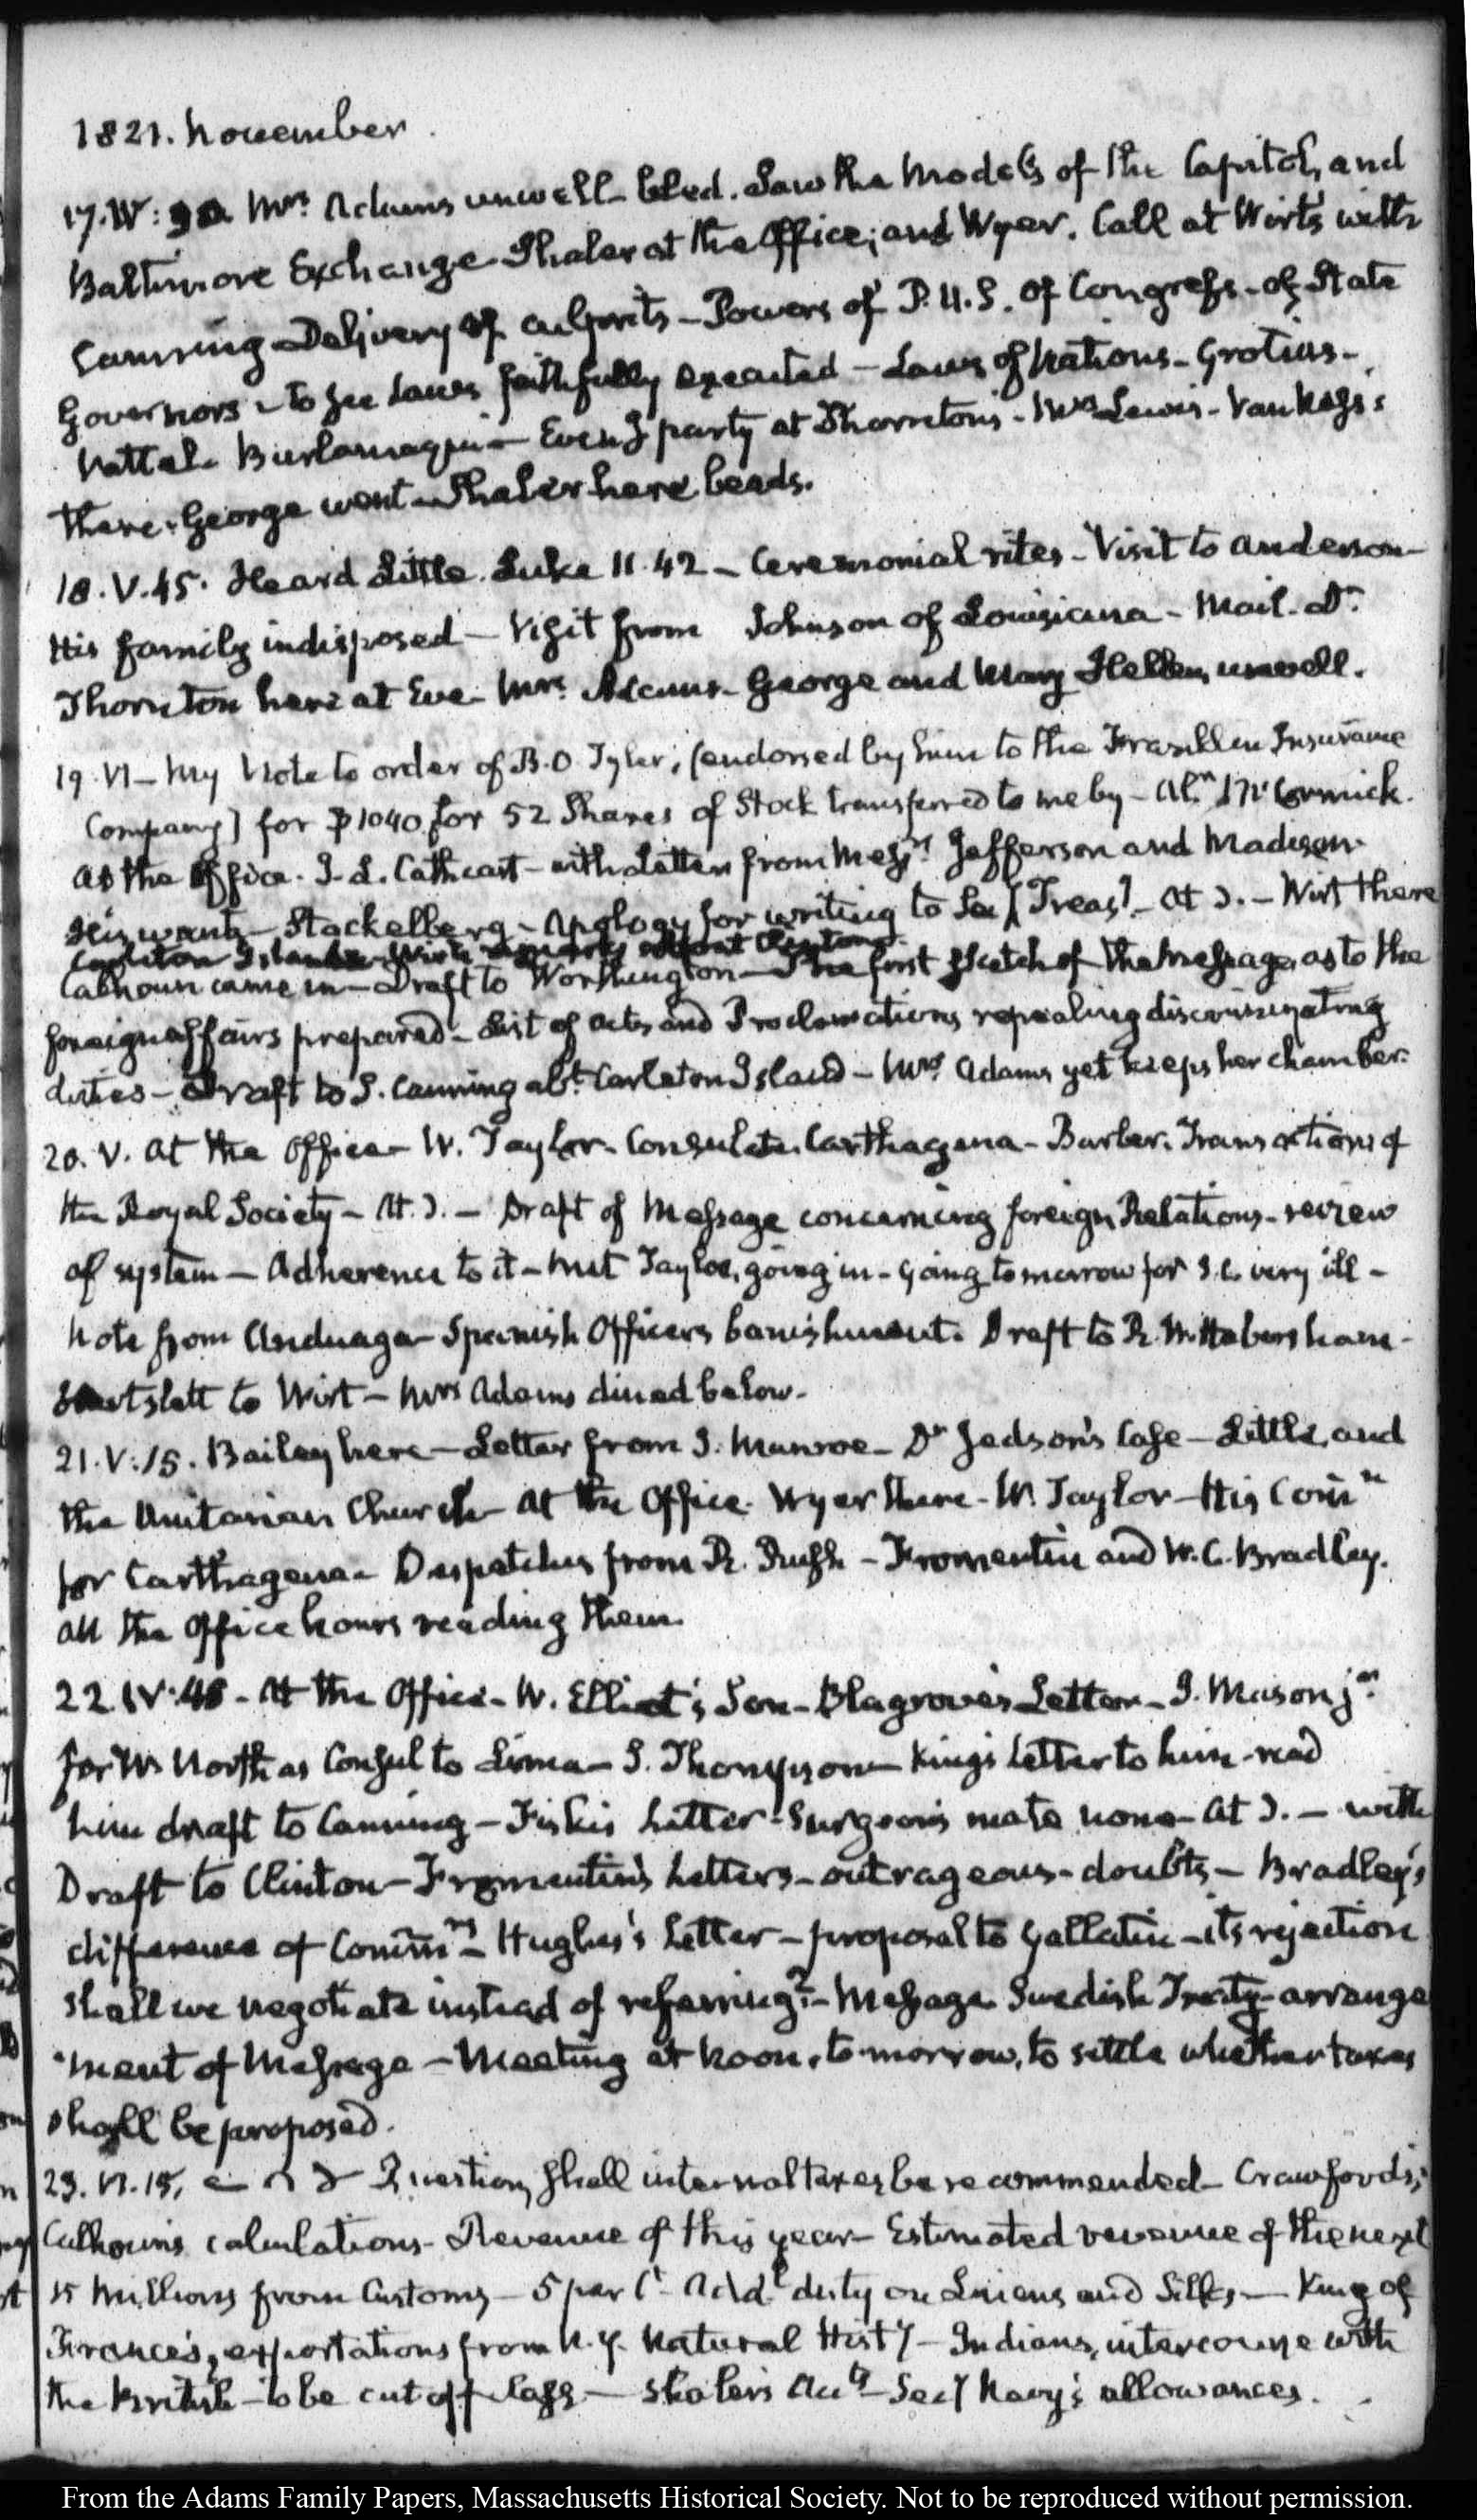 1821. November.
17. IV: 30. Mrs. Adams unwell bled. Saw the Models of the Capitol, and
Baltimore Exchange Shaler at the Office; and Wyer. Call at Wirt's with
Canning Delivery of culprits – Powers of P. U.S. of Congress – of State
Governors – to see Laws faithfully executed – Laws of Nations – Grotius –
Vattel – Burlamaqui – Eveng party at Thornton's – Mrs Lewis – Van Ness's
there. George went – Shaler here beads.
18. V. 45. Heard Little. Luke 11. 42 – Ceremonial rites – Visit to Anderson –
His family indisposed – Visit from Johnson of Louisiana – Mail. Dr.
Thornton here at Eve. Mrs. Adams – George and Mary Hellen, unwell.
19. VI – My Note to order of B. O. Tyler, (endorsed by him to the Franklin Insurance
Company) for $1040 for 52 Shares of Stock transferred to me by – Alr. McCormick.
At the Office. J. L. Cathcart – with Letters from Messrs. Jefferson and Madison.
His wants – Stackelberg – Apology for writing to Secy Treasy. – At ). – Wirt there
Calhoun came in – Draft to Worthington – The first sketch of the Message, as to the
foreign affairs prepared – List of acts and Proclamations repealing discriminating
duties – Draft to S. Canning abt. Carleton Island – Mrs. Adams yet keeps her chamber.
20. V. At the Office – W. Taylor. Consulate. Carthagena – Barber. Transactions of
the Royal Society – At ). – Draft of Message concerning foreign Relations – review
of system – Adherence to it – met Tayloe, going in – going to morrow for S.C. very ill –
Note from Anduaga – Spanish Officers banishment. Draft to R. W. Habersham –
Sent lett to Wirt – Mrs Adams dined below –
21. V: 15. Bailey here – Letter from J. Munroe – Dr Jadson's Case – Little, and
the Unitarian Church – At the Office. Wyer there – W. Taylor – His Comn
for Carthagena – Despatches from R. Rush – Fromentin and W. C. Bradley.
All the Office hours reading them.
22. IV: 48 – At the Office – W. Elliot's Son – Blagrove's Letter – J. Mason jr.
for W North as Consul to Lima – S. Thompson – King's Letter to him – read
him draft to Canning – Fisk's Letter – Surgeon's mate none – At ). – with
Draft to Clinton – Fromentin's Letters – outrageous – doubts – Bradley's
difference of Commrs – Hughes's Letter – proposal to Gallatin – its rejection
shall we negotiate instead of referring? – Message Swedish Treaty – arrange
ment of Message – Meeting at Noon, to-morrow, to settle whether taxes
shall be proposed.
23. VI. 15, Question, Shall internal taxes be recommended – Crawford's,
Calhoun's calculations – Revenue of this year – Estimated revenue of the next
15 Millions from Customs – 5 per Ct Addl duty on Linens and Silks, – King of
France's, exportations from N.Y. Natural Histy – Indians, intercourse with
the British – to be cut off – Cass – Shaler's Acts – Secy Navy's allowances.
From the Adams Family Papers, Massachusetts Historical Society. Not to be reproduced without permission.